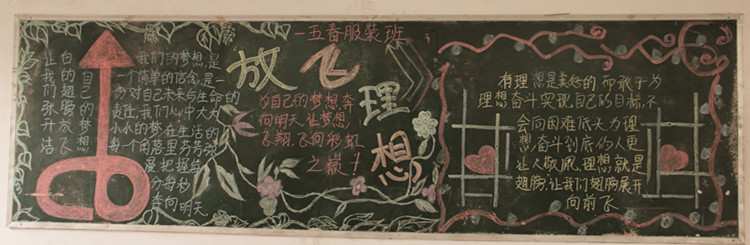 一五春服装班
放飞理想
让我们张开洁
白的翅膀放飞
自己的梦想
我们的梦想,是
一个简单的信念,是一
份对自己未来与生命的
责任,我们心中大大
小小的梦,在生活的
每一个角落里芬芳弥
漫把握每
分每秒
奔向明天.
为自己的梦想奔
向明天,让梦想
飞翔,飞向彩虹
之巅!
有理想是美好的而敢于为
理想奋斗实现自己的目标,不
会向困难低头,为理
想奋斗到底的人更
让人敬佩,理想就是
翅膀,让我们翅膀展开
向前飞